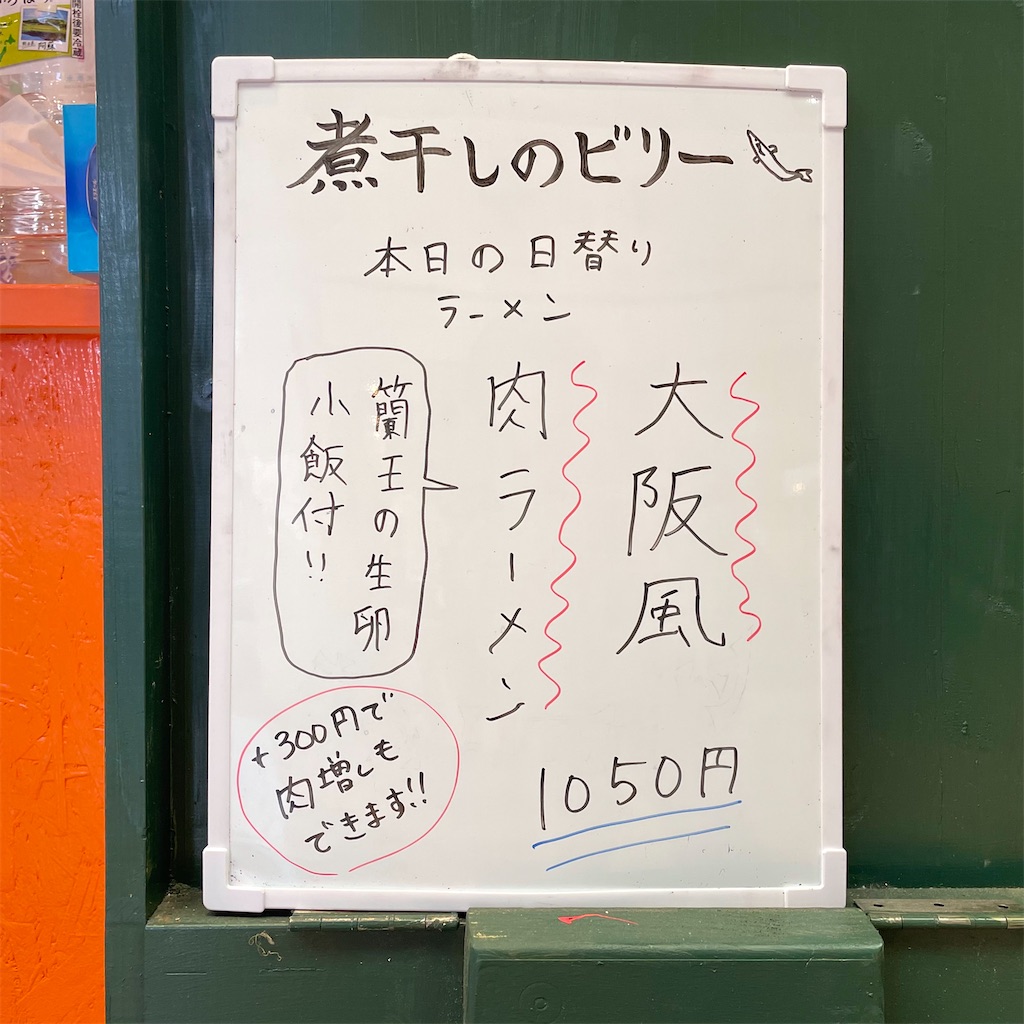 煮干しのビリー
本日の日替り
ラーメン
大阪風
肉ラーメン
蘭王の生卵
小飯付!!
+300円で
肉増しも
できます!!
1050円
開栓後要冷蔵